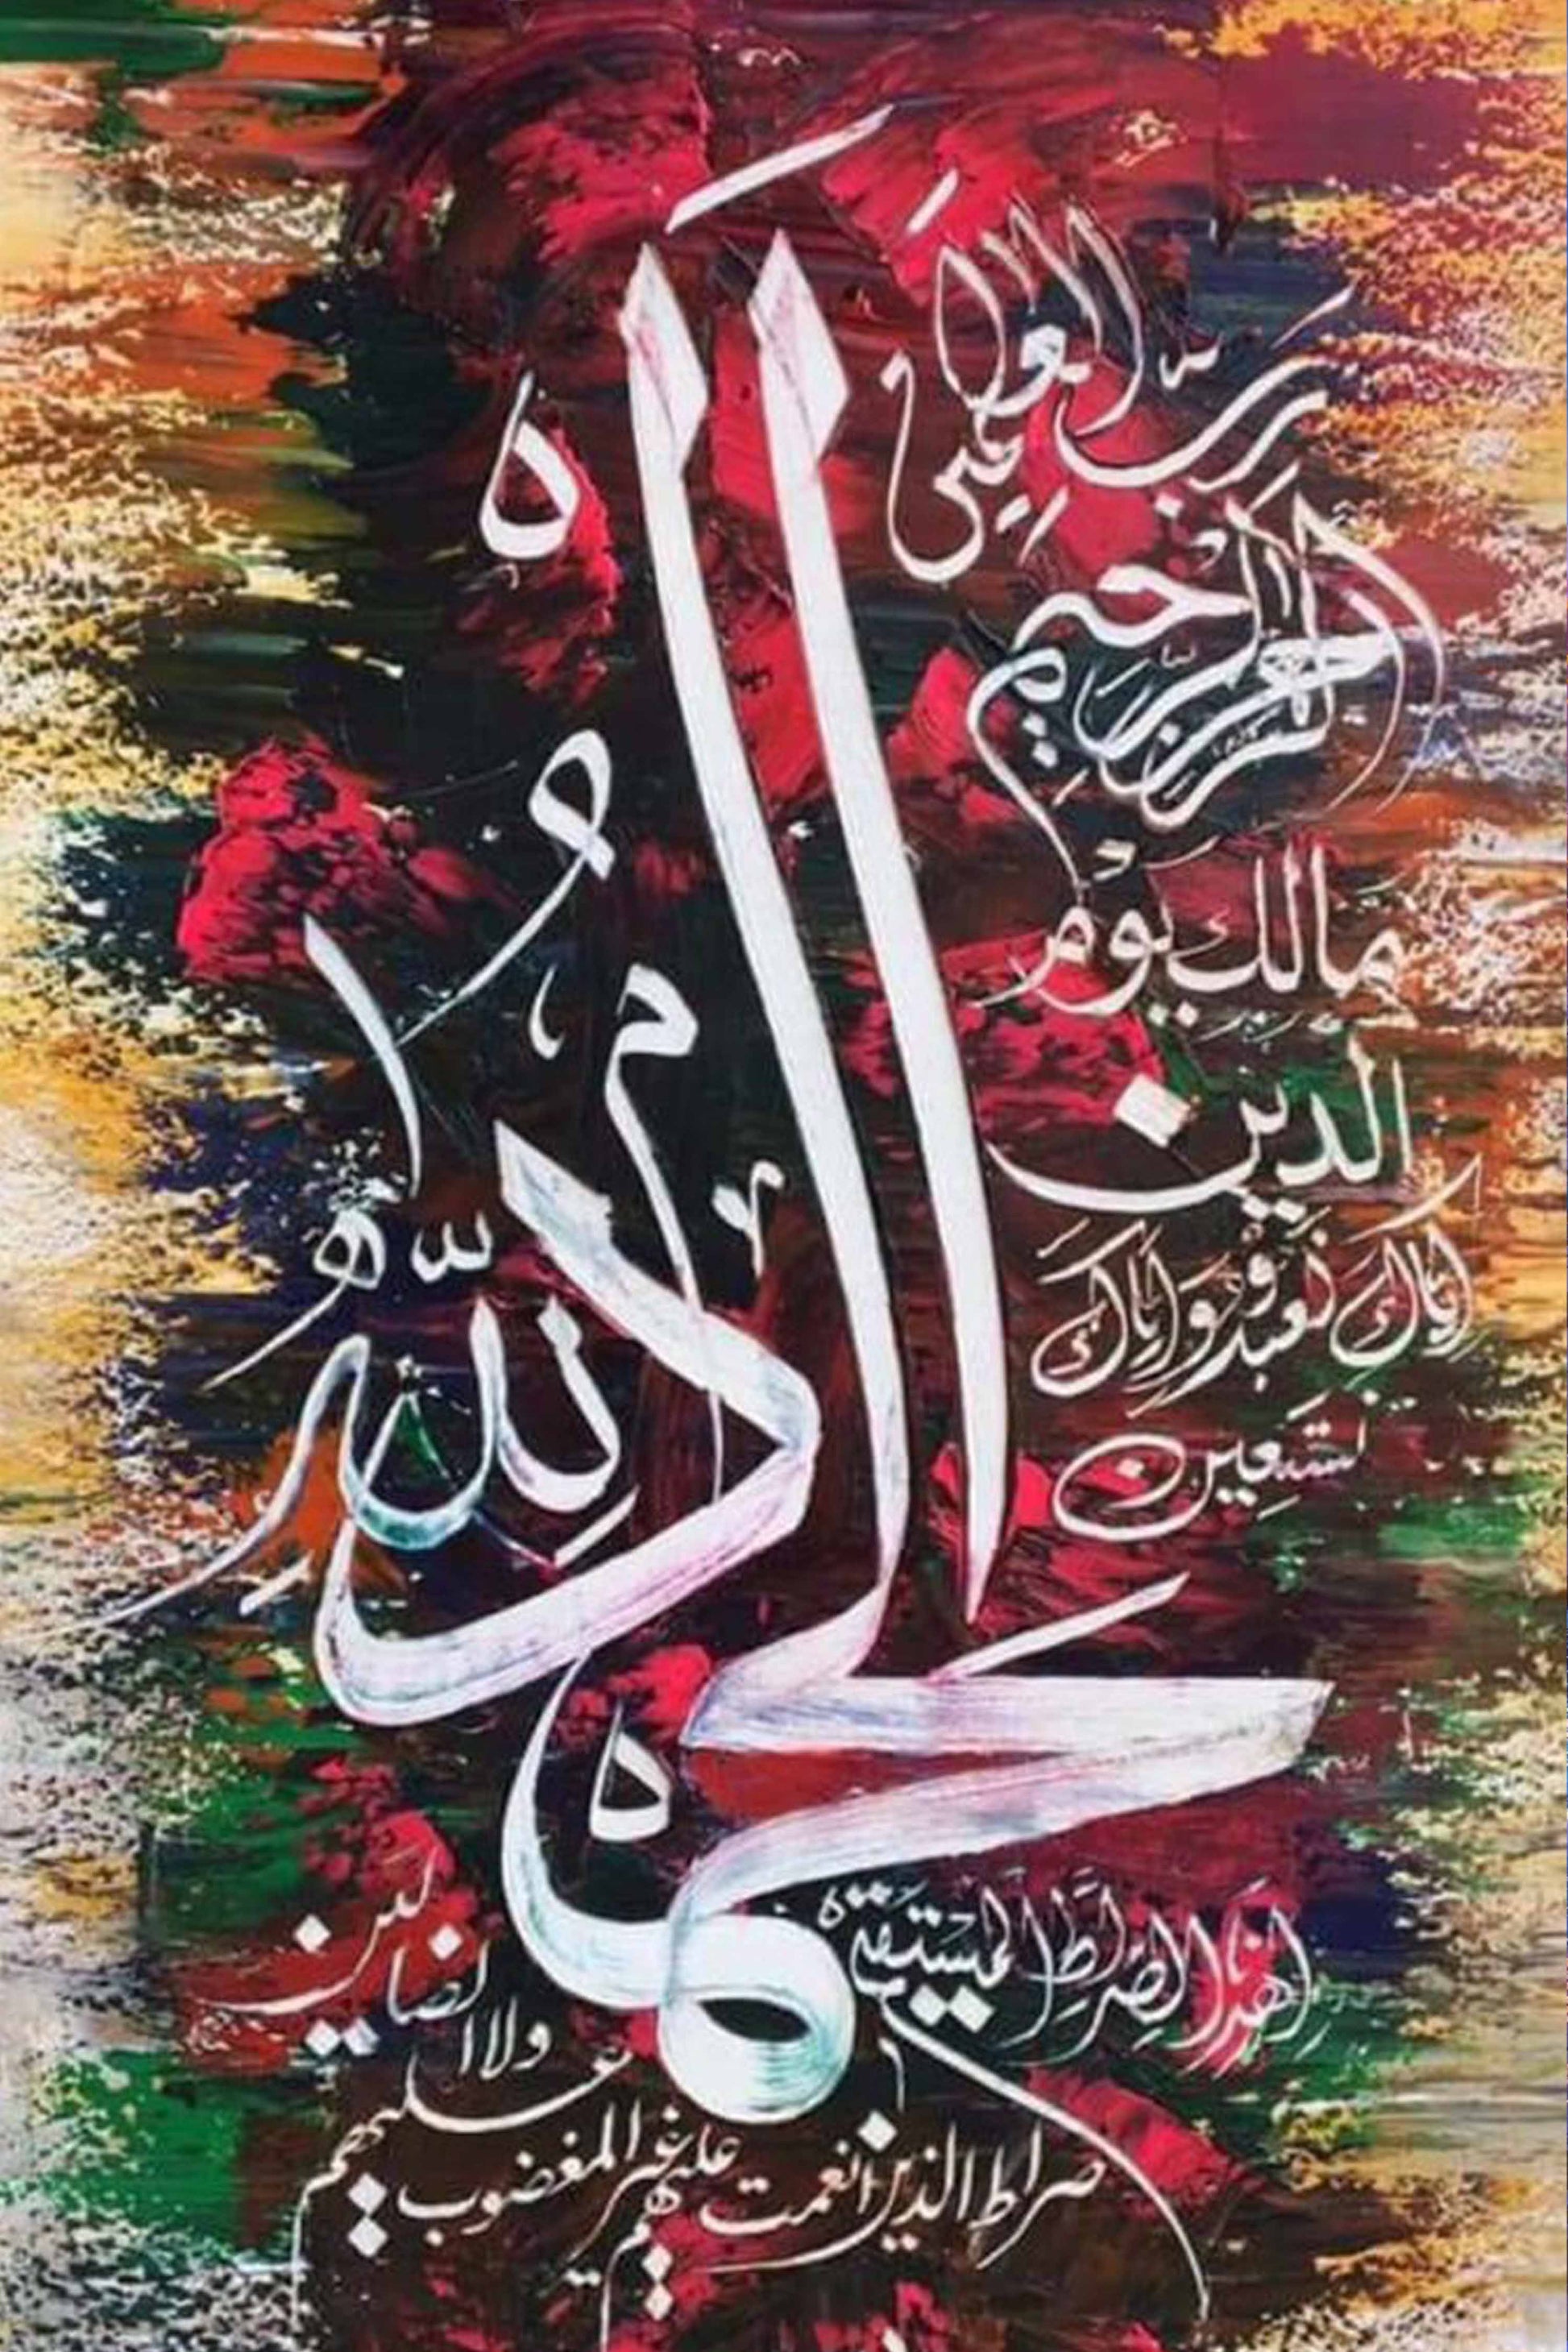 الحمد لله
رب العالمين
الرحمن الرحيم
مالك يوم
الدين
إياك نعبد وإياك
نستعين
اهدنا الصراط المستقيم
صراط الذين أنعمت عليهم غير المغضوب عليهم
ولا الضالين